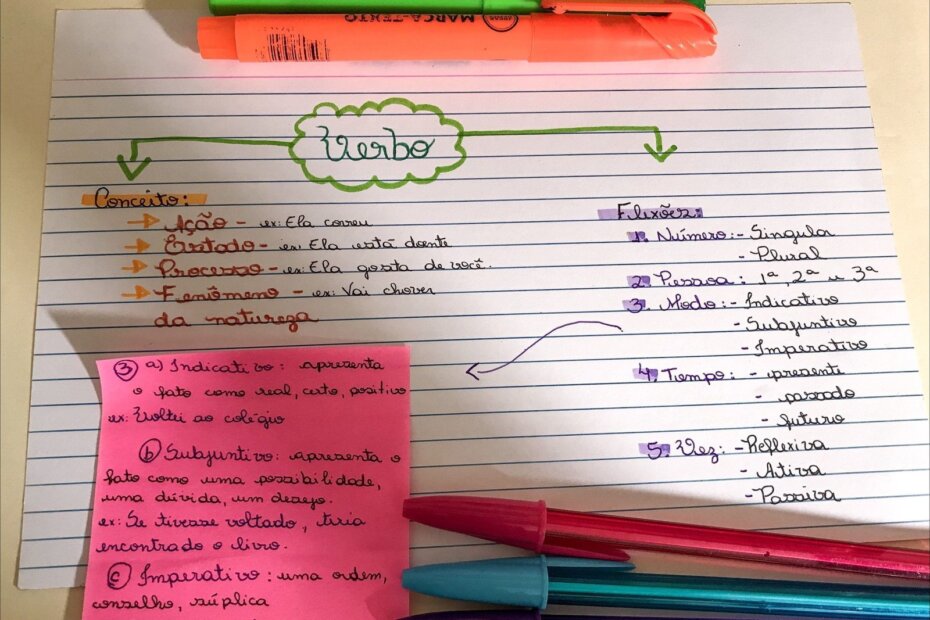 MARCA-TEXTO
Verbo
Conceito:
Ação - ex: Ela correu
Estado - ex: Ela está doente
Processo - ex: Ela gosta de você.
Fenômeno - ex: Vai chover
da natureza
Flexões:
1. Número: - Singular
- Plural
2. Pessoa: 1ª, 2ª e 3ª
3. Modo: - Indicativo
- Subjuntivo
- Imperativo
4. Tempo: - presente
- passado
- futuro
5. Vez: - Reflexiva
- Ativa
- Passiva
3 a) Indicativo: apresenta
o fato como real, certo, positivo
ex: Voltei ao colégio
b) Subjuntivo: apresenta o
fato como uma possibilidade,
uma dúvida, um desejo.
ex: Se tivesse voltado, teria
encontrado o livro.
c) Imperativo: uma ordem,
conselho, súplica